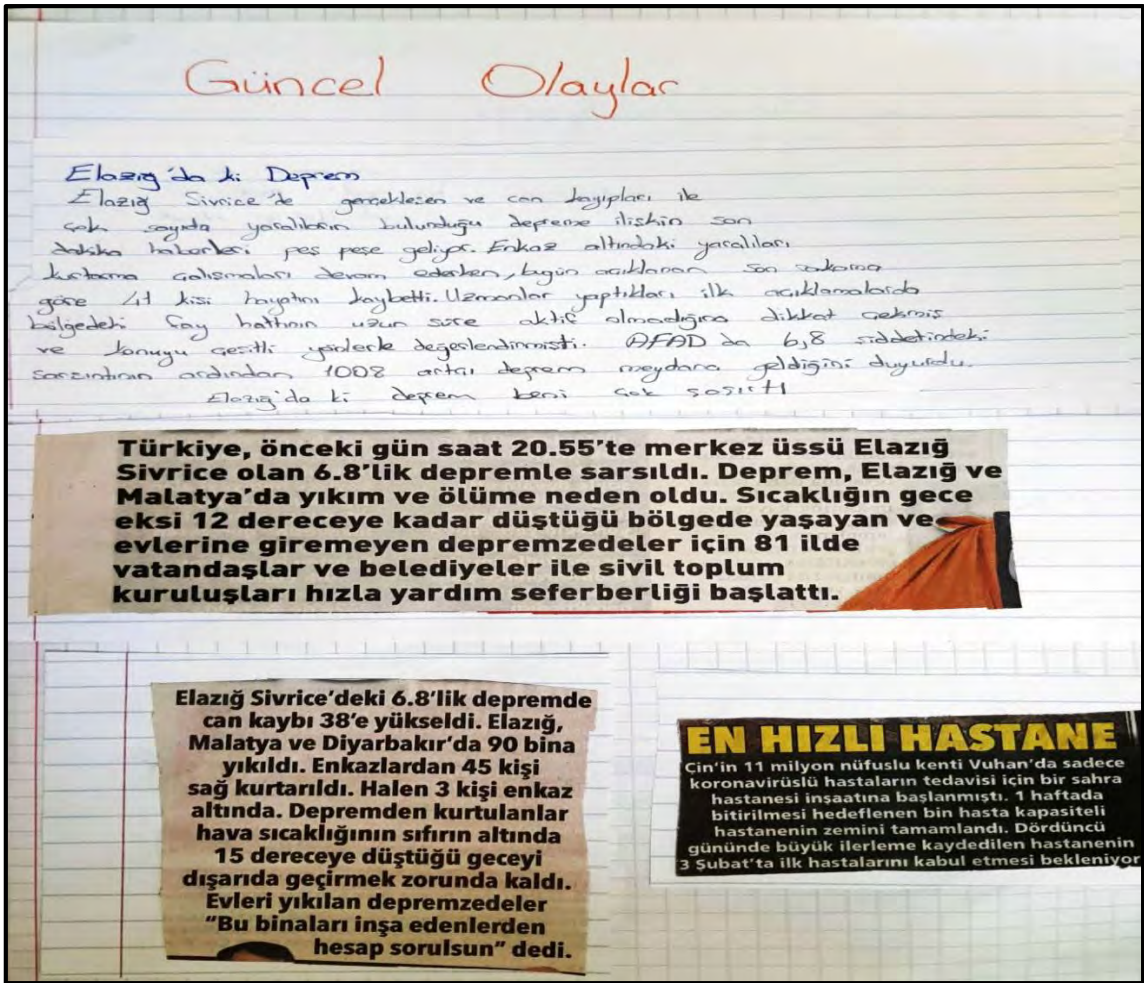 Güncel Olaylar
Elazığ'da ki Deprem
Elazığ Sivrice'de gerçekleşen ve can kayıpları ile
çok sayıda yaralıların bulunduğu depreme ilişkin son
dakika haberleri peş peşe geliyor. Enkaz altındaki yaralıları
kurtarma çalışmaları devam ederken, bugün açıklanan son rakama
göre 41 kişi hayatını kaybetti. Uzmanlar yaptıkları ilk açıklamalarda
bölgedeki fay hattının uzun süre aktif olmadığına dikkat çekmiş
ve konuyu çeşitli yönlerle değerlendirmişti. AFAD da 6,8 şiddetindeki
sarsıntının ardından 1008 artçı deprem meydana geldiğini duyurdu.
Elazığ'da ki deprem beni çok şaşırttı
Türkiye, önceki gün saat 20.55'te merkez üssü Elazığ
Sivrice olan 6.8'lik depremle sarsıldı. Deprem, Elazığ ve
Malatya'da yıkım ve ölüme neden oldu. Sıcaklığın gece
eksi 12 dereceye kadar düştüğü bölgede yaşayan ve
evlerine giremeyen depremzedeler için 81 ilde
vatandaşlar ve belediyeler ile sivil toplum
kuruluşları hızla yardım seferberliği başlattı.
Elazığ Sivrice'deki 6.8'lik depremde
can kaybı 38'e yükseldi. Elazığ,
Malatya ve Diyarbakır'da 90 bina
yıkıldı. Enkazlardan 45 kişi
sağ kurtarıldı. Halen 3 kişi enkaz
altında. Depremden kurtulanlar
hava sıcaklığının sıfırın altında
15 dereceye düştüğü geceyi
dışarıda geçirmek zorunda kaldı.
Evleri yıkılan depremzedeler
"Bu binaları inşa edenlerden
hesap sorulsun" dedi.
EN HIZLI HASTANE
Çin'in 11 milyon nüfuslu kenti Vuhan'da sadece
koronavirüslü hastaların tedavisi için bir sahra
hastanesi inşaatına başlanmıştı. 1 haftada
bitirilmesi hedeflenen bin hasta kapasiteli
hastanenin zemini tamamlandı. Dördüncü
gününde büyük ilerleme kaydedilen hastanenin
3 Şubat'ta ilk hastalarını kabul etmesi bekleniyor